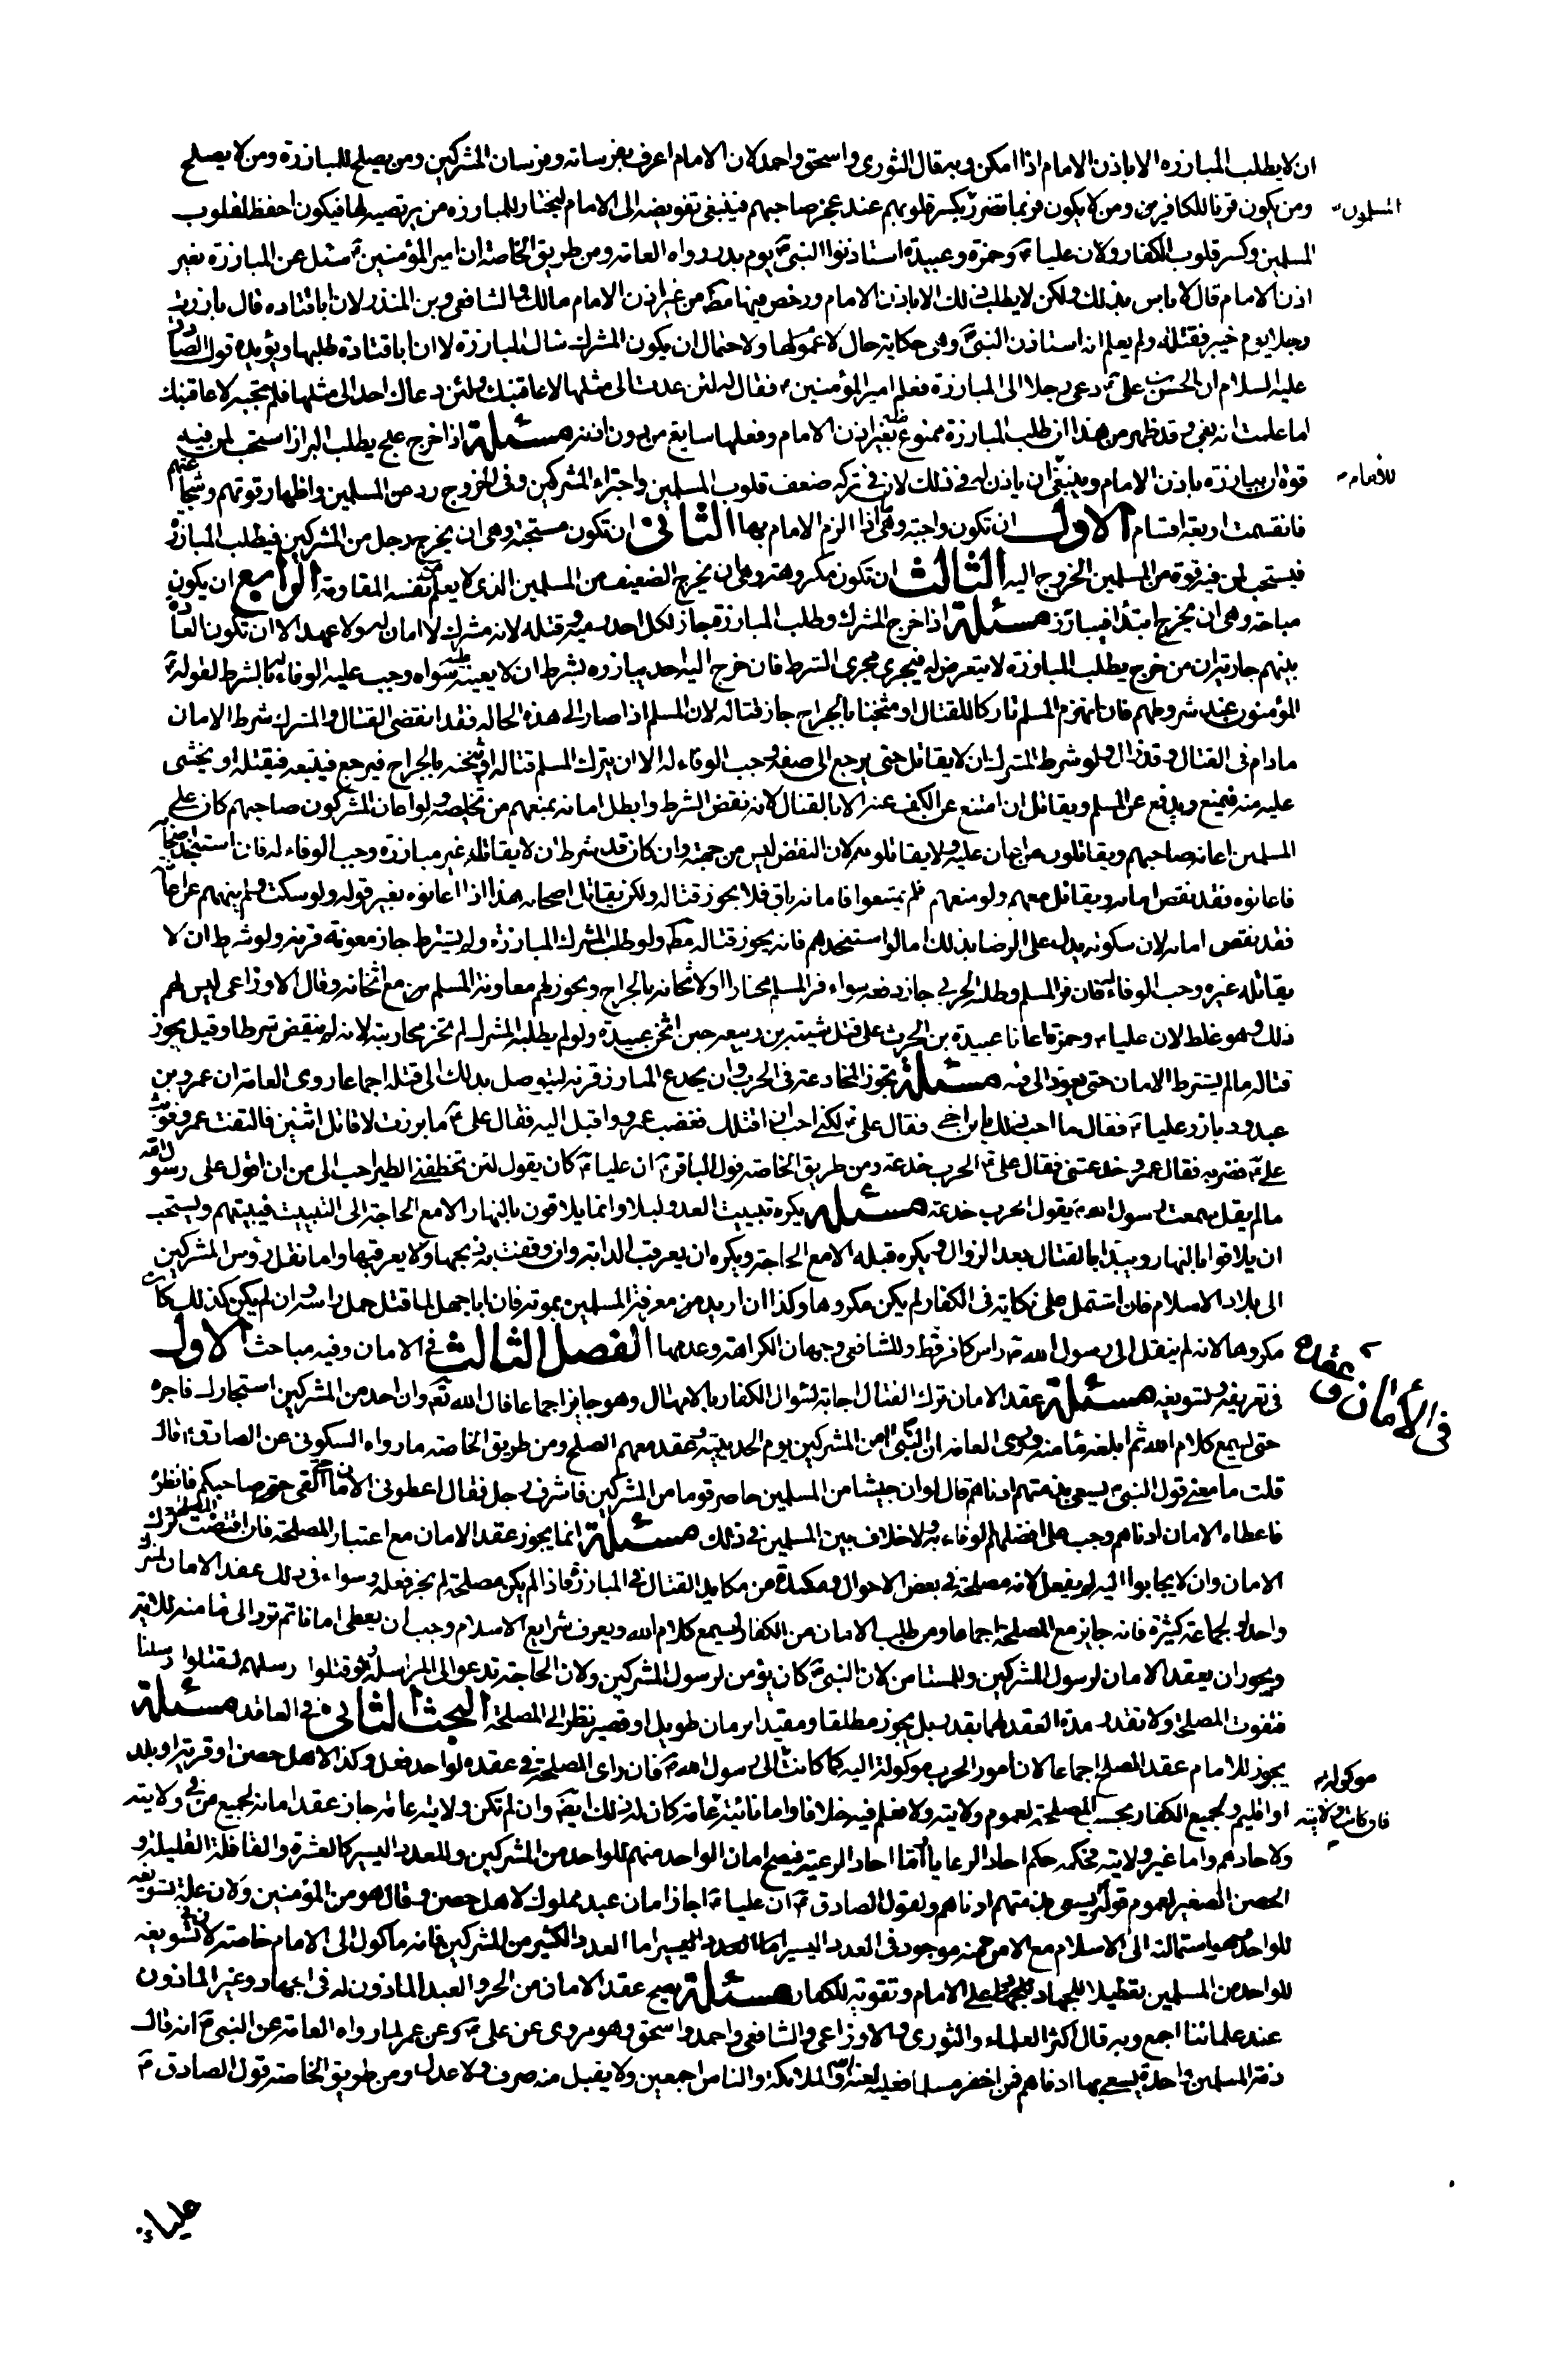 ان لا يطلب المبارزه الا باذن الامام اذا امكن وبه قال الثورى واسحق واحمد لان الامام اعرف بفرسانه وفرسان المشركين ومن يصلح للمبارزة ومن لا يصلح
ومن يكون قرنا للكافر من ومن لا يكون فربما تضرر بكسر قلوبهم عند عجز صاحبهم فينبغى تفويضه الى الامام ليختار للمبارزه من يرتضيه لها فيكون احفظ لقلوب
المسلمون
المسلمين وكسر قلوب الكفار ولان عليا ع وحمزة وعبيدة استاذنوا النبى ص يوم بدر رواه العامه ومن طريق الخاصة ان امير المؤمنين ع سئل عن المبارزة بغير
اذن الامام قال لا باس بذلك ولكن لا يطلب ذلك الا باذن الامام ورخص فيها مط من غير اذن الامام مالك والشافعى وبن المنذر لان ابا قتاده قال بارزت
رجلا يوم خيبر فقتلته ولم يعلم انه استاذن النبى ص وهى حكاية حال لا عموم لها ولاحتمال ان يكون المشرك سال المبارزة لا ان ابا قتادة طلبها ويؤيده قول الصادق
عليه السلام ان الحسن بن على ع دعى رجلا الى المبارزة فعلم امير المؤمنين ع فقال له لئن عدت الى مثلها لاعاقبنك ولئن دعاك احد الى مثلها فلم تجبه لاعاقبنك
اما علمت انه بغى وقد ظهر من هذا ان طلب المبارزة ممنوع بغير اذن الامام وفعلها سايغ من دون اذنه مسئلة اذا خرج علج يطلب البراز استحب لمن فيه
قوة ان يبارزه باذن الامام وينبغى ان ياذن له فى ذلك لان فى تركه ضعف قلوب المسلمين واجتراء المشركين وفى الخروج رد عن المسلمين واظهار قوتهم وشجاعتهم
للامام
فانقسمت اربعة اقسام الاول ان تكون واجبة وهى اذا الزم الامام بها الثانى ان تكون مستحبة وهى ان يخرج رجل من المشركين فيطلب المبارزة
فيستحب لمن فيه قوة من المسلمين الخروج اليه الثالث ان تكون مكروهة وهى ان يخرج الضعيف من المسلمين الذى لا يعلم من نفسه المقاومة الرابع ان يكون
مباحة وهى ان يخرج ابتدا فيبارز مسئلة اذا خرج المشرك وطلب المبارزة جاز لكل احد رميه وقتله لانه مشرك لا امان له ولا عهد الا ان تكون العادة
بينهم جارية ان من خرج يطلب المبارزة لا يتعرض له فيجرى مجرى الشرط فان خرج اليه احد يبارزه بشرط ان لا يعينه عليه سواه وجب عليه الوفاء له بالشرط لقوله ع
المؤمنون عند شروطهم فان انهزم المسلم تاركا للقتال او مثخنا بالجراح جاز قتاله لان المسلم اذا صار الى هذه الحاله فقد انقضى القتال والمشرك شرط الامان
مادام فى القتال وقد زال ولو شرط المشرك ان لا يقاتل حتى يرجع الى صفه وجب الوفاء له الا ان يترك المسلم قتاله او يثخنه بالجراح فيرجع فيتبعه فيقتله او يخشى
عليه منه فيمنع ويدفع عن المسلم ويقاتل ان امتنع عن الكف عنه الا بالقتال لانه نقض الشرط وابطل امانه بمنعهم من تخليصه ولو اعان المشركون صاحبهم كان على
المسلمين اعانة صاحبهم ويقاتلون من اعان عليه ولا يقاتلونه لان النقض ليس من جهته وان كان قد شرط ان لا يقاتله غير مبارزه وجب الوفاء له فان استنجد اصحابه
فاعانوه فقد نقض امانه ويقاتل معهم ولو منعهم فلم يمتنعوا فامانه باق فلا يجوز قتاله ولكن يقاتل اصحابه هذا اذا اعانوه بغير قوله ولو سكت ولم ينههم عن اعانته
فقد نقض امانه لان سكوته يدل على الرضا بذلك اما لو استنجدهم فانه يجوز قتاله مط ولو طلب المشرك المبارزة ولم يشترط جاز معونة قرنه ولو شرط ان لا
يقاتله غيره وجب الوفاء له فان فر المسلم وطلبه الحربى جاز دفعه سواء فر المسلم مختارا او لاثخانه بالجراح ويجوز لهم معاونة المسلم مع اثخانه وقال الاوزاعى ليس لهم
ذلك وهو غلط لان عليا ع وحمزة اعانا عبيدة بن الحرث على قتل شيبة بن ربيعه حين اثخن عبيدة ولو لم يطلبه المشرك لم تجز محاربته لانه لم ينقض شرطا وقيل يجوز
قتاله ما لم يشترط الامان حتى يعود الى فئه مسئلة يجوز المخادعة فى الحرب وان يخدع المبارز قرنه ليتوصل بذلك الى قتله اجماعا روى العامة ان عمرو بن
عبد ود بارز عليا ع فقال ما احب ذلك يا بن اخى فقال على ع لكنى احب ان اقتلك فغضب عمرو واقبل اليه فقال على ع ما برزت لاقاتل اثنين فالتفت عمرو فوثب
على ع فضربه فقال عمرو خدعتنى فقال على ع الحرب خدعة ومن طريق الخاصة قول الباقر ع ان عليا ع كان يقول لئن تخطفنى الطير احب الى من ان اقول على رسول الله
ما لم يقل سمعت رسول الله ص يقول الحرب خدعة مسئلة يكره تبييت العدو ليلا وانما يلاقون بالنهار الا مع الحاجة الى التبييت فيبيتهم ويستحب
ان يلاقوا بالنهار ويبتدا بالقتال بعد الزوال ويكره قبله الا مع الحاجة ويكره ان يعرقب الدابة وان وقفت به ذبحها ولا يعرقبها واما نقل رؤس المشركين
الى بلاد الاسلام فان اشتمل على نكاية فى الكفار لم يكن مكروها وكذا ان اريد من معرفة المسلمين بموته فان ابا جهل لما قتل حمل راسه وان لم يكن كذلك كان
مكروها لانه لم ينقل الى رسول الله ص راس كافر قط وللشافعى وجهان الكراهة وعدمها الفصل الثالث فى الامان وفيه مباحث الاول
فى الأمان وعقده
فى تعريفه وتسويغه مسئلة عقد الامان ترك القتال اجابة لسؤال الكفار بالامهال وهو جايز اجماعا قال الله تع وان احد من المشركين استجارك فاجره
حتى يسمع كلام الله ثم ابلغه مامنه وروى العامه ان النبى ص امن المشركين يوم الحديبية وعقد معهم الصلح ومن طريق الخاصه ما رواه السكونى عن الصادق ع قال
قلت ما معنى قول النبى ص يسعى بذمتهم ادناهم قال لو ان جيشا من المسلمين حاصر قوما من المشركين فاشرف رجل فقال اعطونى الامان حتى القى صاحبكم فاناظره
فاعطاه الامان ادناهم وجب على افضلهم الوفاء به ولا خلاف بين المسلمين فى ذلك مسئلة انما يجوز عقد الامان مع اعتبار المصلحة فان اقتضت المصلحة ترك
الامان وان لا يجابوا اليه لم يفعل لانه مصلحة فى بعض الاحوال ومكيدة من مكايد القتال فى المبارزة فاذا لم يكن مصلحة لم يجز فعله وسواء فى ذلك عقد الامان لمشرك
واحد او لجماعة كثيرة فانه جايز مع المصلحة اجماعا ومن طلب الامان من الكفار ليسمع كلام الله ويعرف شرايع الاسلام وجب ان يعطى امانا ثم ترد الى مامنه للاية
ويجوز ان يعقد الامان لرسول المشركين وللمستامن لان النبى ص كان يؤمن لرسول المشركين ولان الحاجة تدعو الى المراسلة ولو قتلوا رسلهم لقتلوا رسلنا
فتفوت المصلحة ولا تقدر مدة العقد لهما بقدر بل يجوز مطلقا ومقيدا بزمان طويل او قصير نظرا الى المصلحة البحث الثانى فى العاقد مسئلة
يجوز للامام عقد الصلح اجماعا لان امور الحرب موكولة اليه كما كانت الى رسول الله ص فان راى المصلحة فى عقده لواحد فعل وكذا لاهل حصن او قرية او بلد
موكوله
او اقليم ولجميع الكفار بحسب المصلحة لعموم ولايته ولا نعلم فيه خلافا واما نائبه فان كانت ولايته عامة كان له ذلك ايض وان لم تكن ولايته عامة جاز عقد امانه لجميع من فى ولايته
فان كانت ولايته
ولاحادهم واما غير ولايته فحكمه حكم احاد الرعايا اما احاد الرعية فيصح امان الواحد منهم للواحد من المشركين وللعدد اليسير كالعشرة والقافلة القليلة و
الحصن الصغير لعموم قوله ع يسعى بذمتهم ادناهم ولقول الصادق ع ان عليا ع اجاز امان عبد مملوك لاهل حصن وقال هو من المؤمنين ولان علة تسويغه
للواحد وهو استمالته الى الاسلام مع الامن منه موجود فى العدد اليسير اما العدد الكثير من المشركين فانه ماكول الى الامام خاصة لان فى تسويغه
للواحد من المسلمين تعطيلا للجهاد على الامام وتقوية للكفار مسئلة يصح عقد الامان من الحر والعبد الماذون له فى الجهاد وغير الماذون
عند علمائنا اجمع وبه قال اكثر العلماء والثورى والاوزاعى والشافعى واحمد واسحق وهو مروى عن على ع وعن عمر لما رواه العامة عن النبى ص انه قال
ذمة المسلمين واحدة يسعى بها ادناهم فمن اخفر مسلما فعليه لعنة الله والملائكة والناس اجمعين ولا يقبل منه صرف ولا عدل ومن طريق الخاصة قول الصادق ع
عليا ع